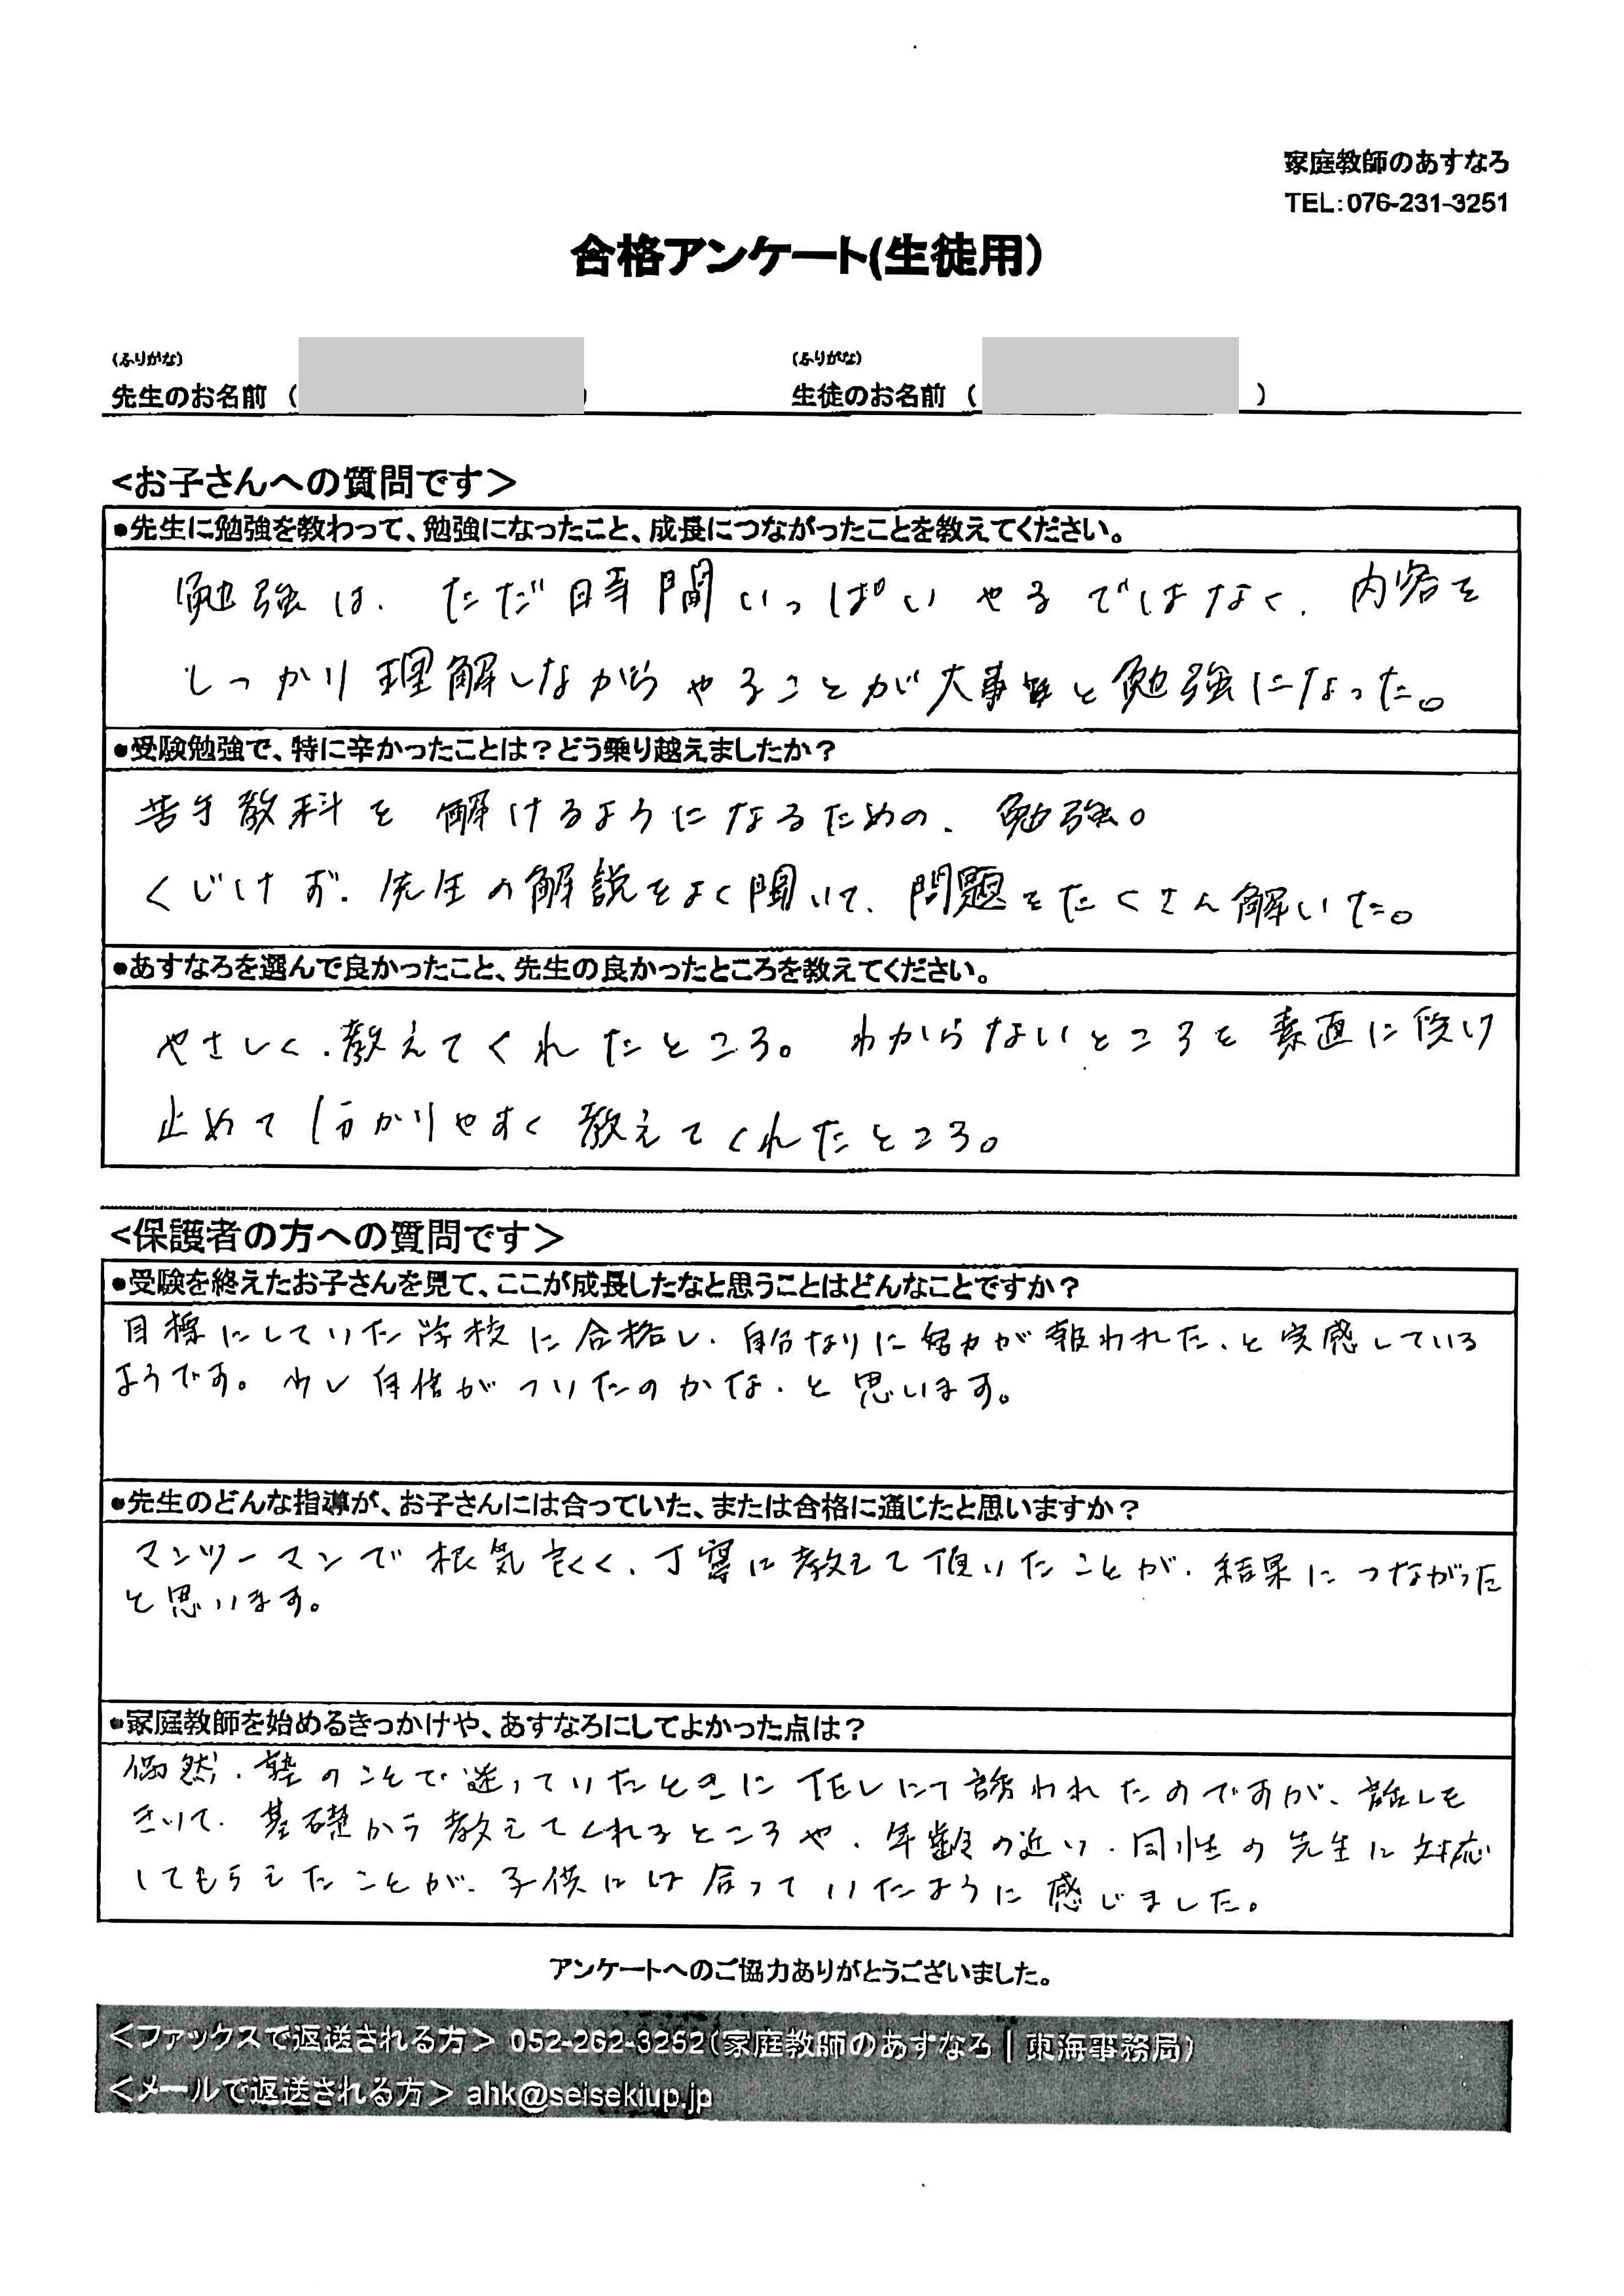 家庭教師のあすなろ
TEL:076-231-3251
合格アンケート(生徒用)
(ふりがな)
(ふりがな)
先生のお名前 (
)
生徒のお名前 (
)
<お子さんへの質問です>
●先生に勉強を教わって、勉強になったこと、成長につながったことを教えてください。
勉強は、ただ時間いっぱいやるではなく、内容を
しっかり理解しながらやることが大事と勉強になった。
●受験勉強で、特に辛かったことは?どう乗り越えましたか?
苦手教科を解けるようになるための、勉強。
くじけず、先生の解説をよく聞いて、問題をたくさん解いた。
●あすなろを選んで良かったこと、先生の良かったところを教えてください。
やさしく、教えてくれたところ。わからないところを素直に受け
止めて分かりやすく教えてくれたところ。
<保護者の方への質問です>
●受験を終えたお子さんを見て、ここが成長したなと思うことはどんなことですか?
目標にしていた学校に合格し、自分なりに努力が報われた、と実感している
ようです。少し自信がついたのかな、と思います。
●先生のどんな指導が、お子さんには合っていた、または合格に通じたと思いますか?
マンツーマンで根気良く、丁寧に教えて頂いたことが、結果につながった
と思います。
●家庭教師を始めるきっかけや、あすなろにしてよかった点は?
偶然、塾のことで迷っていたときにTELにて誘われたのですが、話しを
きいて、基礎から教えてくれるところや、年齢の近い、同性の先生に対応
してもらえたことが、子供には合っていたように感じました。
アンケートへのご協力ありがとうございました。
<ファックスで返送される方> 052-262-3252(家庭教師のあすなろ | 東海事務局)
<メールで返送される方> ahk@seisekiup.jp